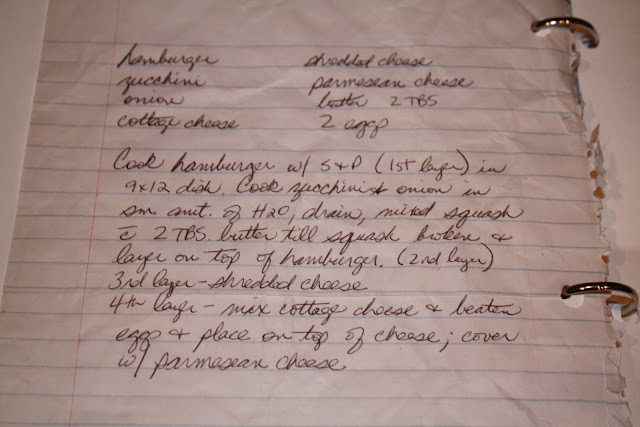 hamburger shredded cheese
zucchini parmesean cheese
onion butter 2 TBS
cottage cheese 2 eggs
Cook hamburger w/ S+P (1st layer) in
9x12 dish. Cook zucchini & onion in
sm amt. of H2O, drain, mixed squash
c̄ 2 TBS. butter till squash broken &
layer on top of hamburger. (2nd layer)
3rd layer - shredded cheese
4th layer - mix cottage cheese & beaten
eggs & place on top of cheese; cover
w/ parmesean cheese